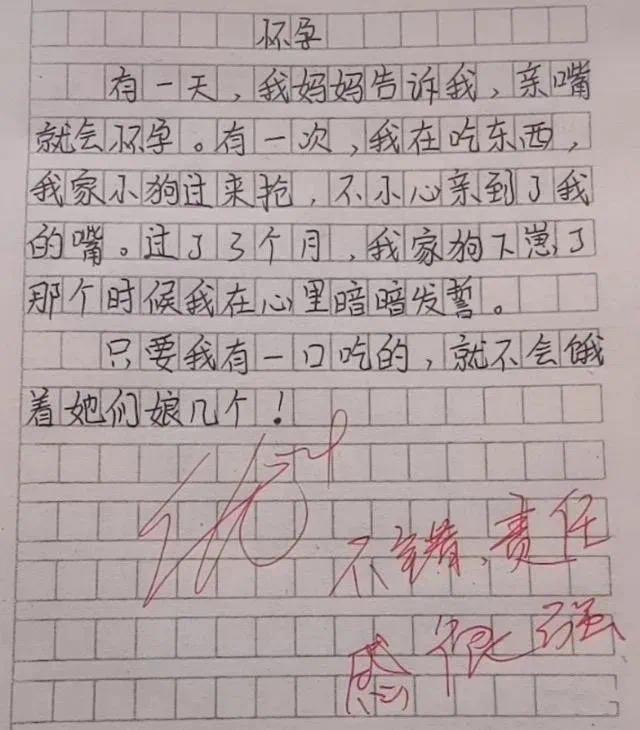 怀孕
有一天，我妈妈告诉我，亲嘴
就会怀孕。有一次，我在吃东西，
我家小狗过来抢，不小心亲到了我
的嘴。过了3个月，我家狗下崽了
那个时候我在心里暗暗发誓。
只要我有一口吃的，就不会饿
着她们娘几个！
不错，责任
感很强